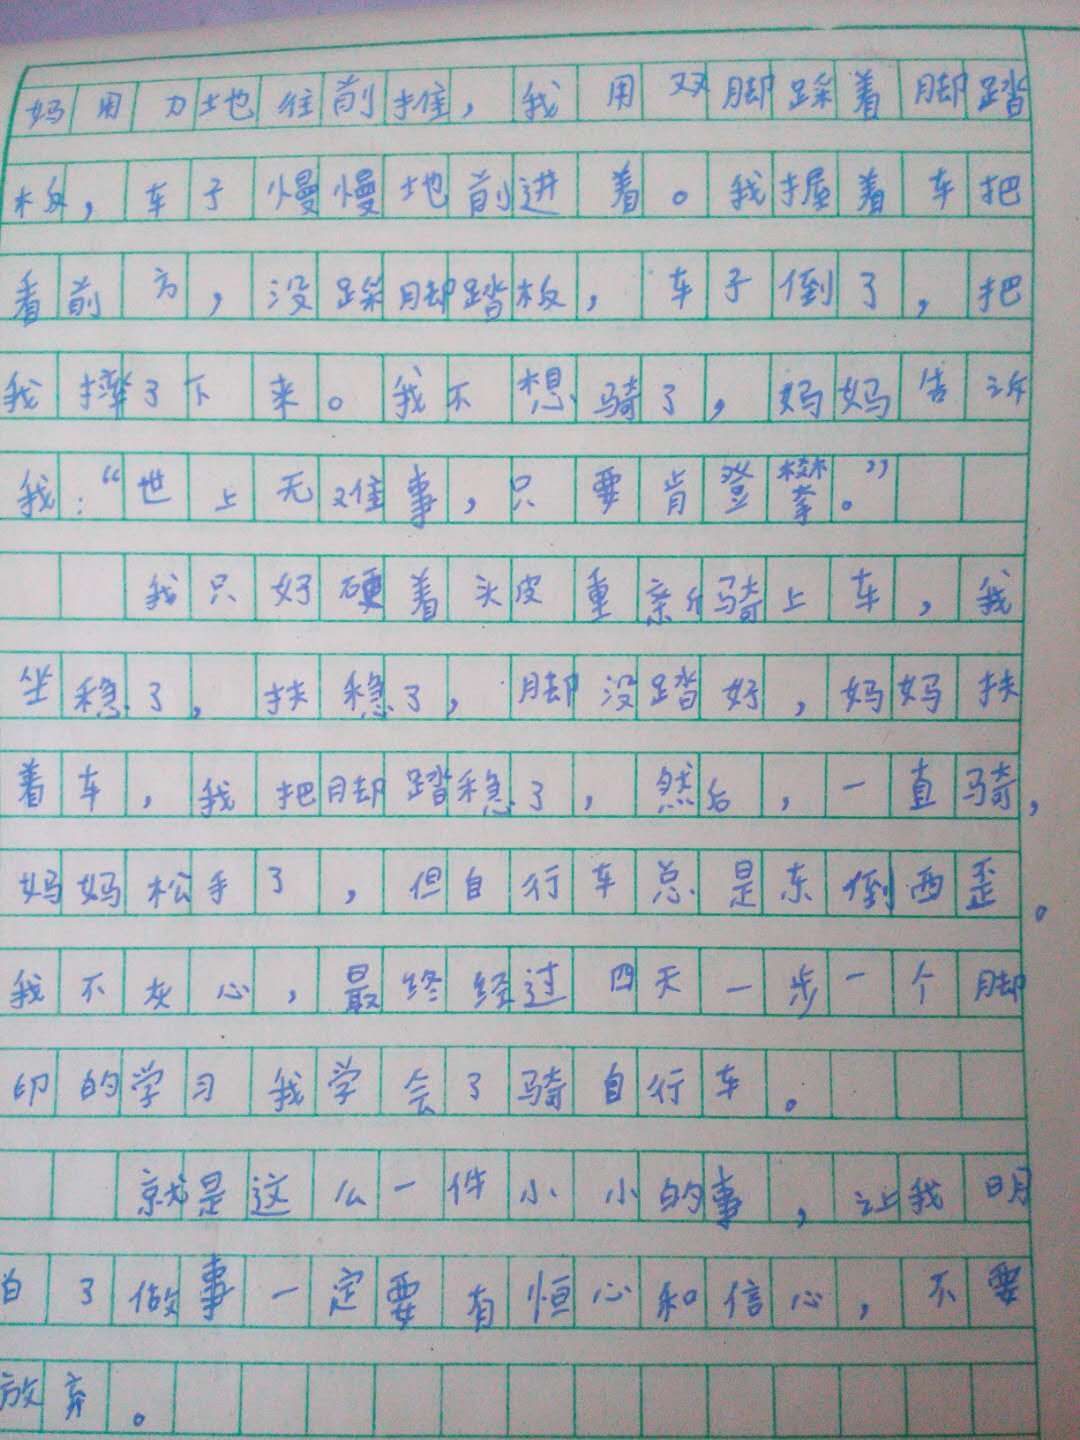 妈用力地往前推，我用双脚踩着脚踏
板，车子慢慢地前进着。我握着车把
看前方，没踩脚踏板，车子倒了，把
我摔了下来。我不想骑了，妈妈告诉
我：“世上无难事，只要肯登攀。”
我只好硬着头皮重新骑上车，我
坐稳了，扶稳了，脚没踏好，妈妈扶
着车，我把脚踏稳了，然后，一直骑，
妈妈松手了，但自行车总是东倒西歪。
我不灰心，最终经过四天一步一个脚
印的学习我学会了骑自行车。
就是这么一件小小的事，让我明
白了做事一定要有恒心和信心，不要
放弃。